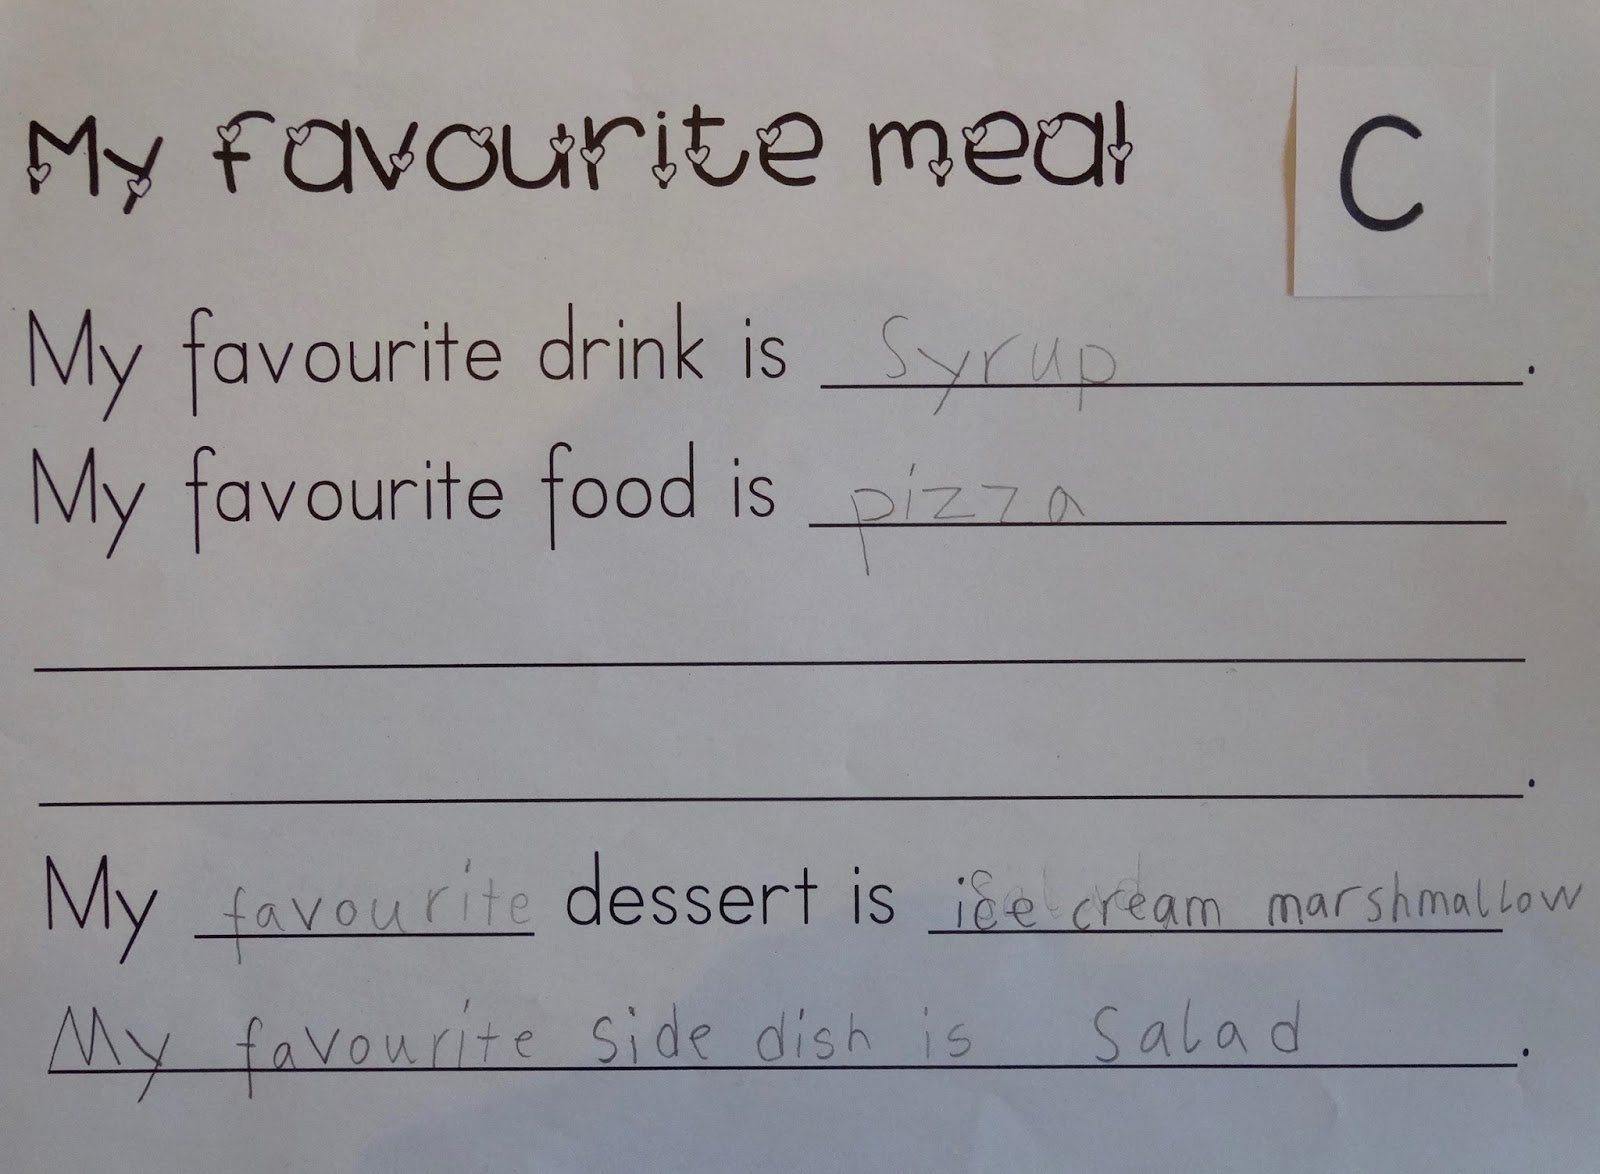 My favourite meal
C
My favourite drink is Syrup.
My favourite food is pizza
.
My favourite dessert is ice cream marshmallow
My favourite side dish is Salad.